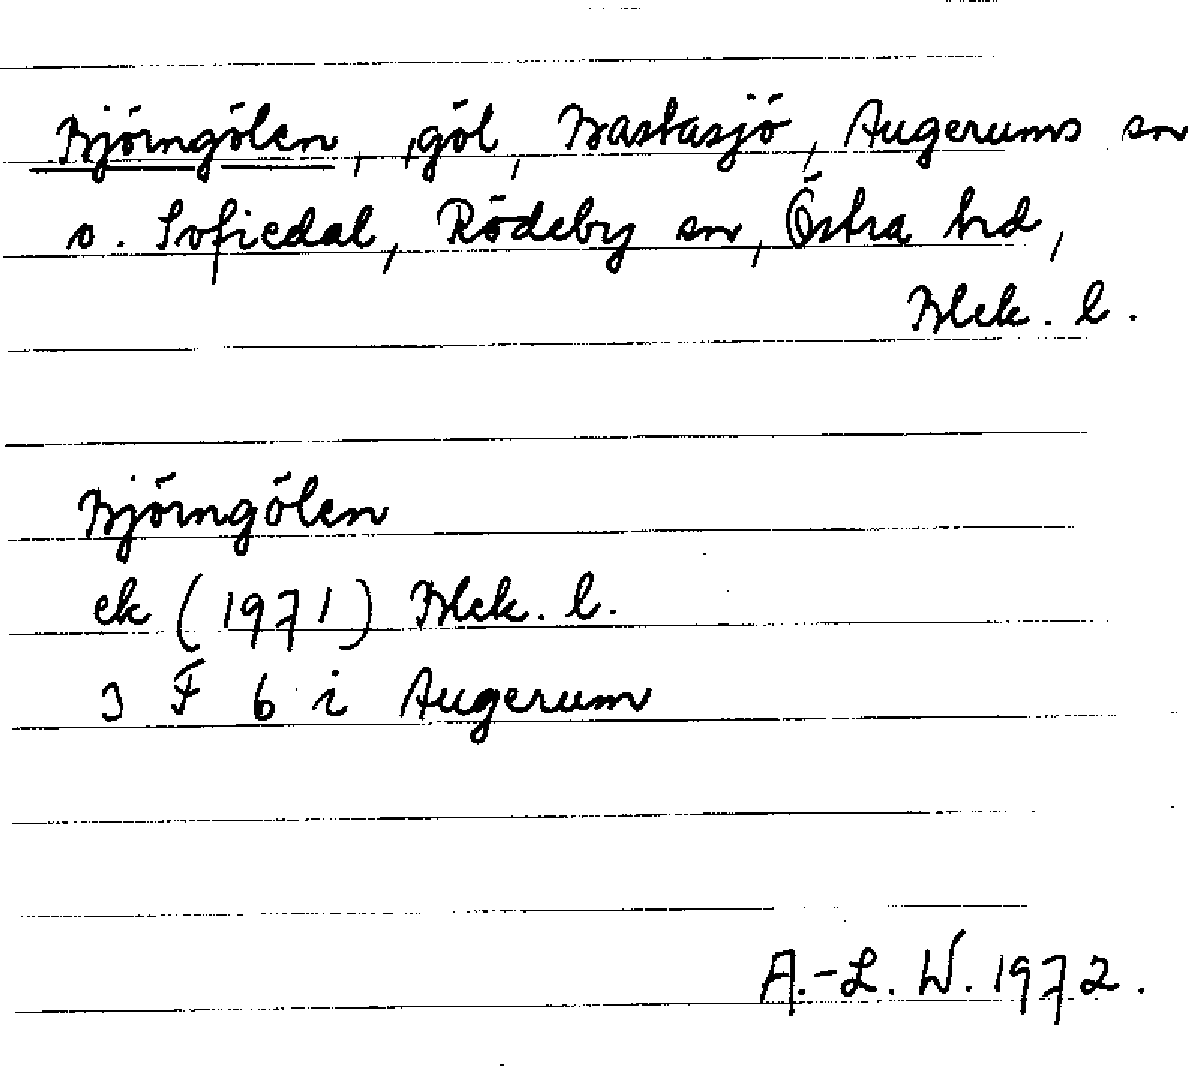 Björngölen, göl, Bastasjö, Augerums sn
o. Sofiedal, Rödeby sn, Östra hd,
Blek. l.
Björngölen
ek (1971) Blek. l.
3 F 6 i Augerum
A.-L. W. 1972.